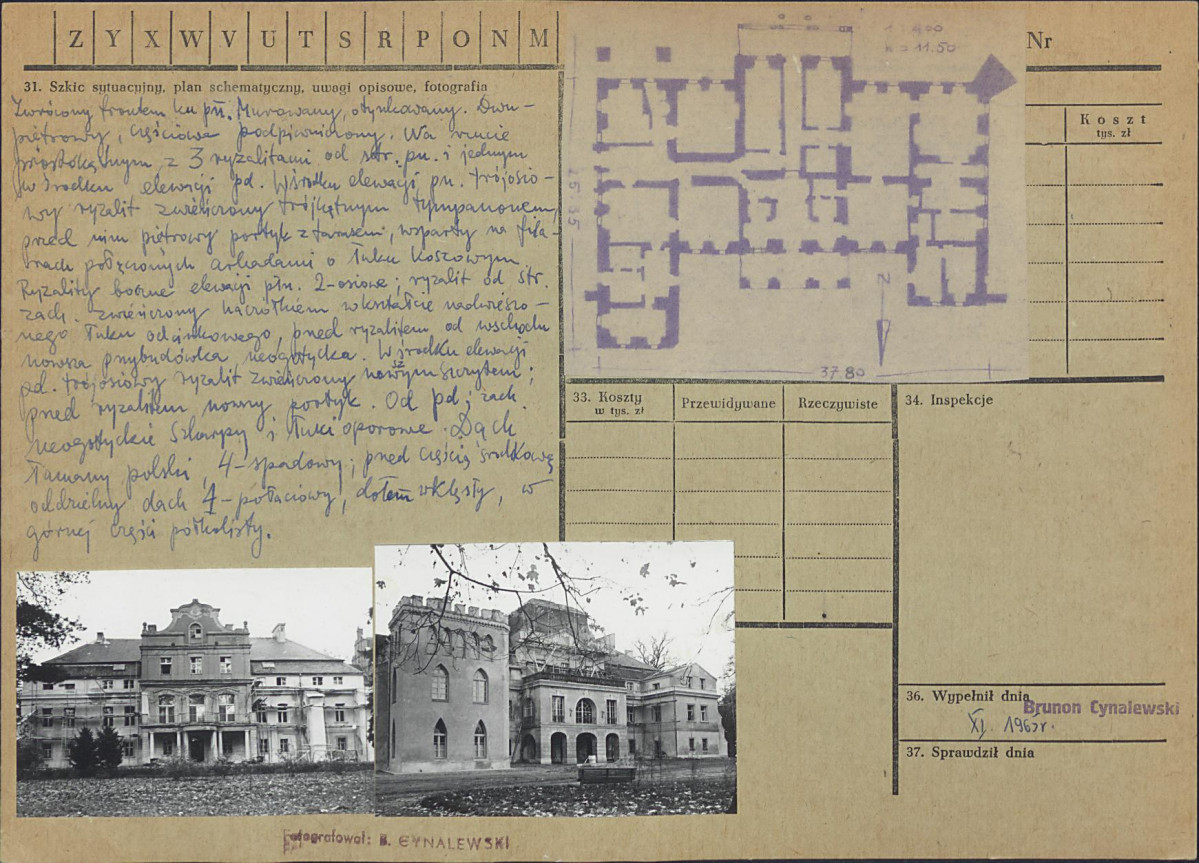 Z Y X W V U T S R P O N M
Nr
31. Szkic sytuacyjny, plan schematyczny, uwagi opisowe, fotografia
Zwrócony frontem ku płn. Murowany, otynkowany. Dwu-
piętrowy, częściowo podpiwniczony. Na rzucie
prostokątnym z 3 ryzalitami od str. pn. i jednym
w środku elewacji pd. W środku elewacji pn. trójosio-
wy ryzalit zwieńczony trójkątnym tympanonem,
przed nim piętrowy portyk z tarasem, wsparty na fila-
rach połączonych arkadami o łuku koszowym.
Ryzality boczne elewacji płn. 2-osiowe; ryzalit od str.
zach. zwieńczony naczółkiem w kształcie nadwieszo-
nego łuku odcinkowego, przed ryzalitem od wschodu
nowsza przybudówka neogotycka. W środku elewacji
pd. trójosiowy ryzalit zwieńczony szczytem;
przed ryzalitem nowszy portyk. Od pd. i zach.
neogotyckie szkarpy i łuki oporowe. Dach
łamany polski, 4-spadowy; przed częścią środkową
oddzielny dach 4-połaciowy, dołem wklęsły, w
górnej części półkolisty.
25 35
N
37 80
Koszt
tys. zł
33. Koszty
w tys. zł
Przewidywane
Rzeczywiste
34. Inspekcje
36. Wypełnił dnia
Brunon Cynalewski
XI.
37. Sprawdził dnia
fotografował: B. CYNALEWSKI